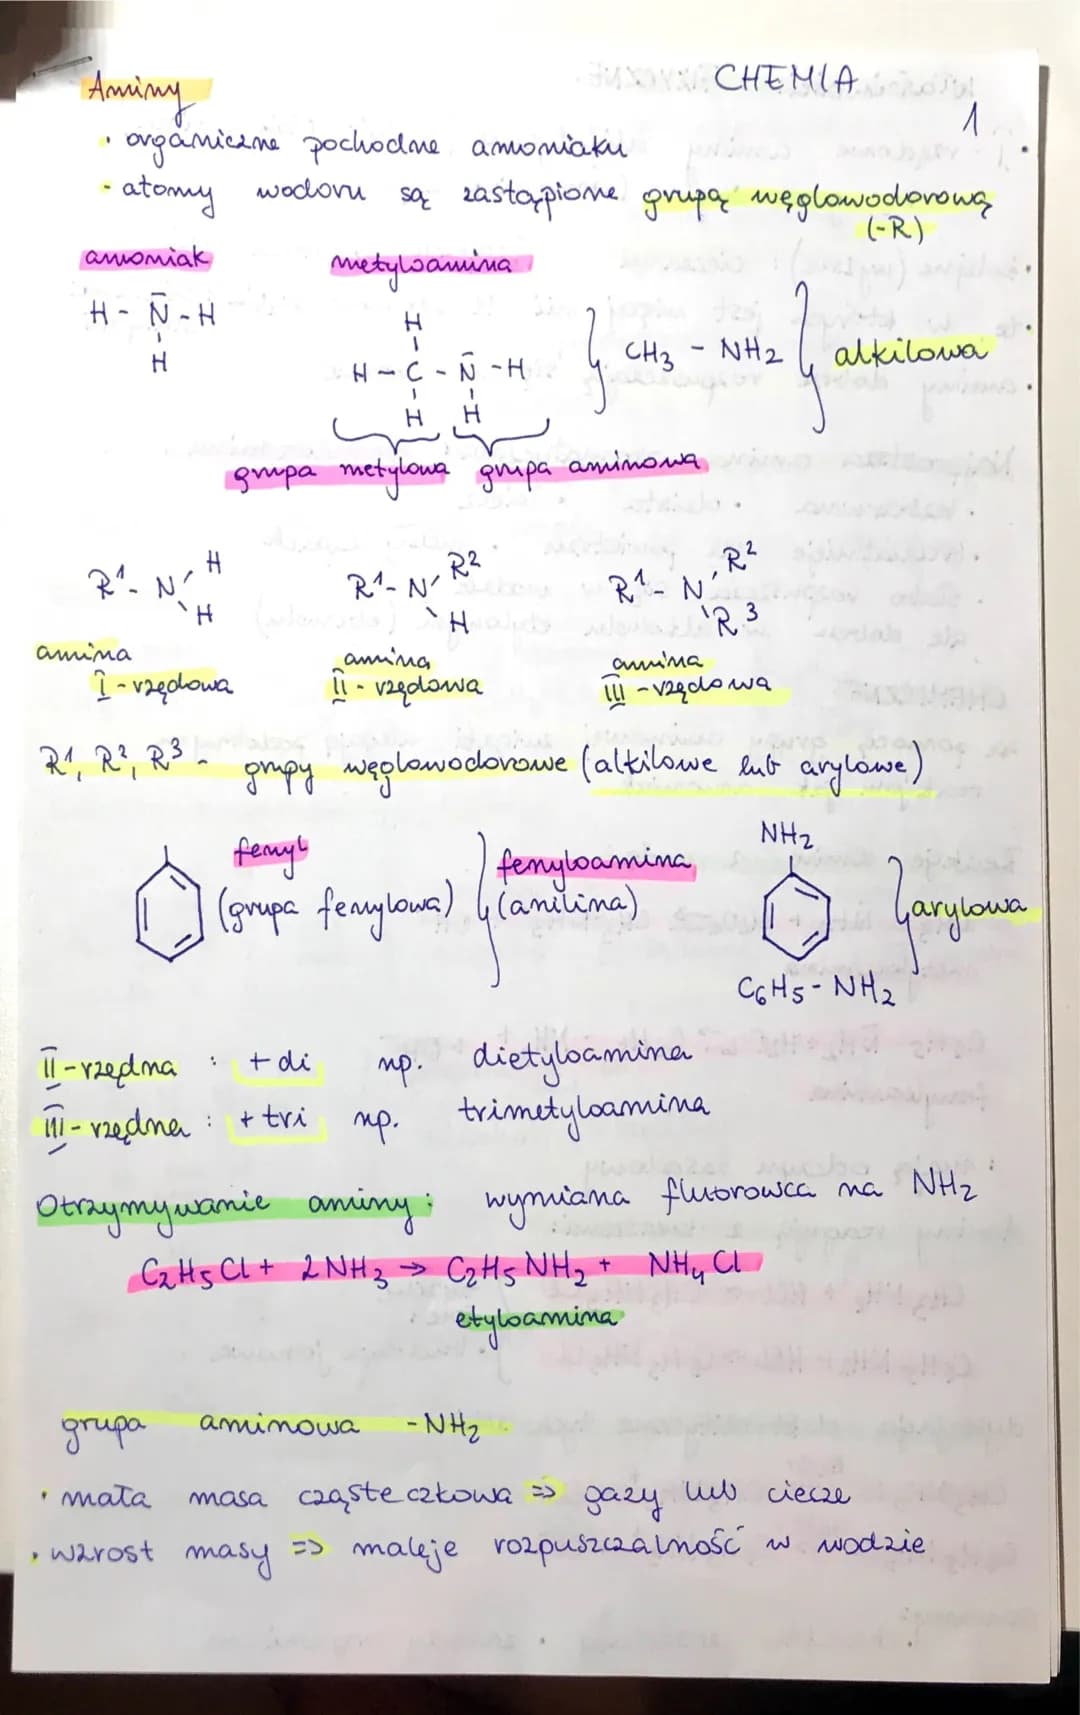 CHEMIA
1
Aminy
• organiczne pochodne amoniaku
- atomy wodoru są zastąpione grupą węglowodorową
(-R)
amoniak
metyloamina
H - N - H
H
H
H - C - N - H
H H
CH3 - NH2
alkilowa
grupa metylowa grupa aminowa
R1 - N H
H
R1 - N R2
H
R1 - N R2
R3
amina
I - rzędowa
amina
II - rzędowa
amina
III - rzędowa
R1, R2, R3 - grupy węglowodorowe (alkilowe lub arylowe)
fenyl
(grupa fenylowa)
fenyloamina
(anilina)
NH2
C6H5 - NH2
arylowa
II - rzędna : + di np. dietyloamina
III - rzędna : + tri np. trimetyloamina
Otrzymywanie aminy : wymiana fluorowca na NH2
C2H5Cl + 2NH3 → C2H5NH2 + NH4Cl
etyloamina
grupa aminowa -NH2
• mała masa cząsteczkowa => gazy lub ciecze
• wzrost masy => maleje rozpuszczalność w wodzie